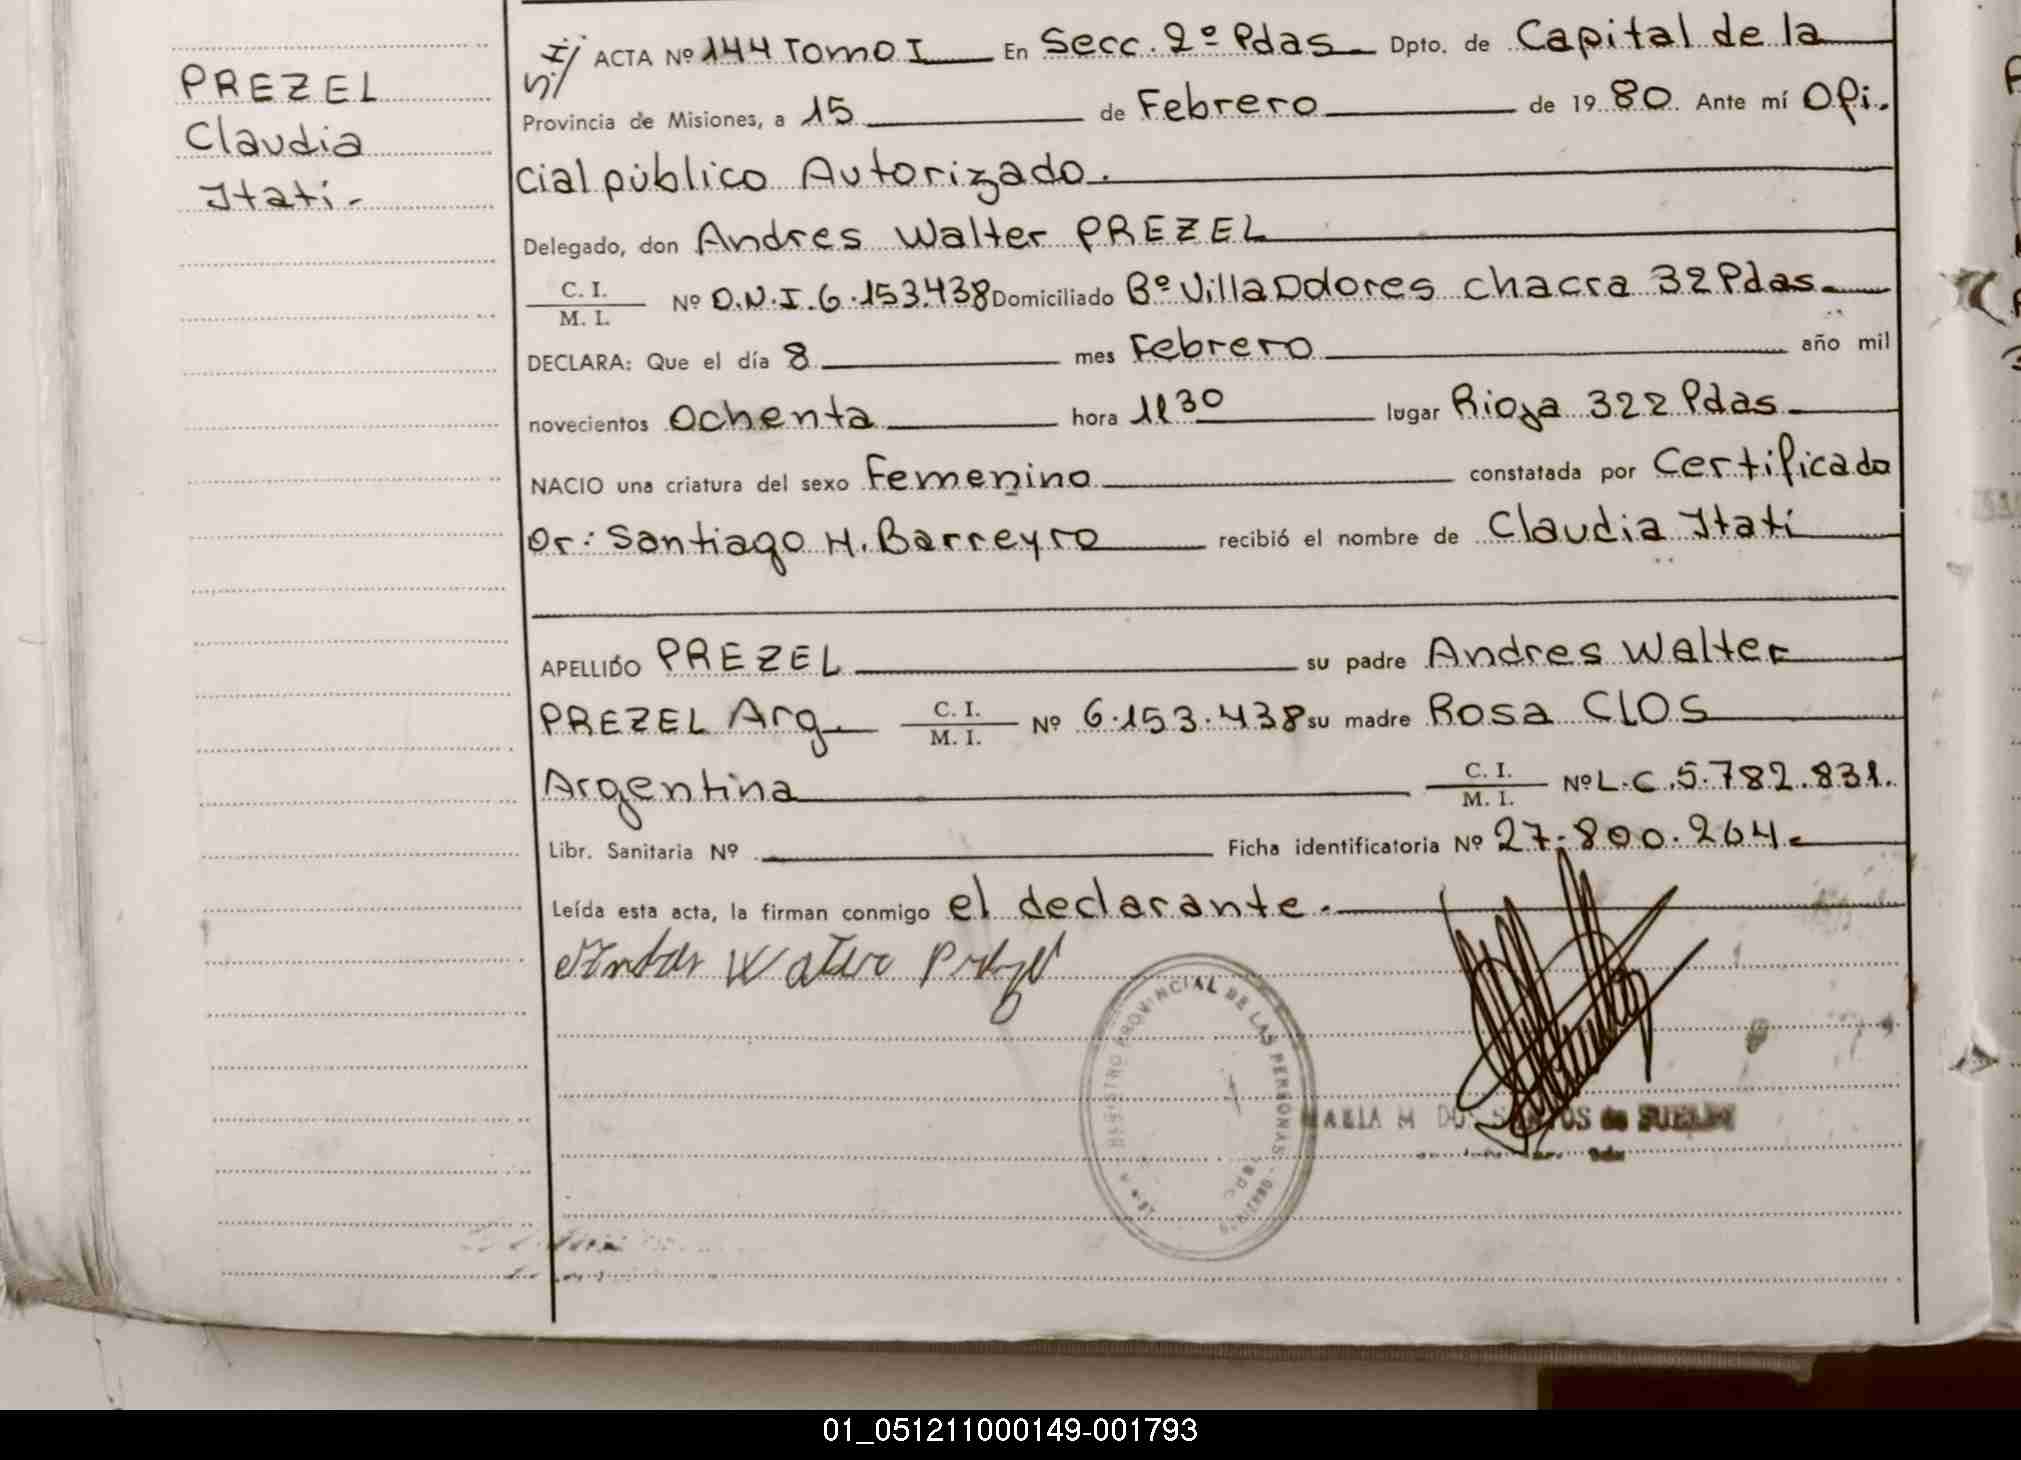 PREZEL
Claudia
Itatí-
I/
S/
ACTA Nº 144 Tomo I En Secc. 2º Pdas Dpto. de Capital de la
Provincia de Misiones, a 15 de Febrero de 1980. Ante mí Ofi.
cial público Autorizado.
Delegado, don Andres Walter PREZEL
C. I.
M. I. Nº D.N.I. 6.153.438 Domiciliado Bº Villa Dolores chacra 32 Pdas.
DECLARA: Que el día 8 mes Febrero año mil
novecientos Ochenta hora 11 30 lugar Rioja 322 Pdas
NACIO una criatura del sexo Femenino constatada por Certificado
Dr: Santiago H. Barreyro recibió el nombre de Claudia Itatí
APELLIDO PREZEL su padre Andres Walter
PREZEL Arg. C. I.
M. I. Nº 6.153.438 su madre Rosa Clos
Argentina C. I.
M. I. Nº L.C. 5.782.831.
Libr. Sanitaria Nº Ficha identificatoria Nº 27.800.264.
Leída esta acta, la firman conmigo el declarante.-
Andres Walter Prezel
REGISTRO PROVINCIAL DE LAS PERSONAS
MARIA M DOS SANTOS de
01_051211000149-001793